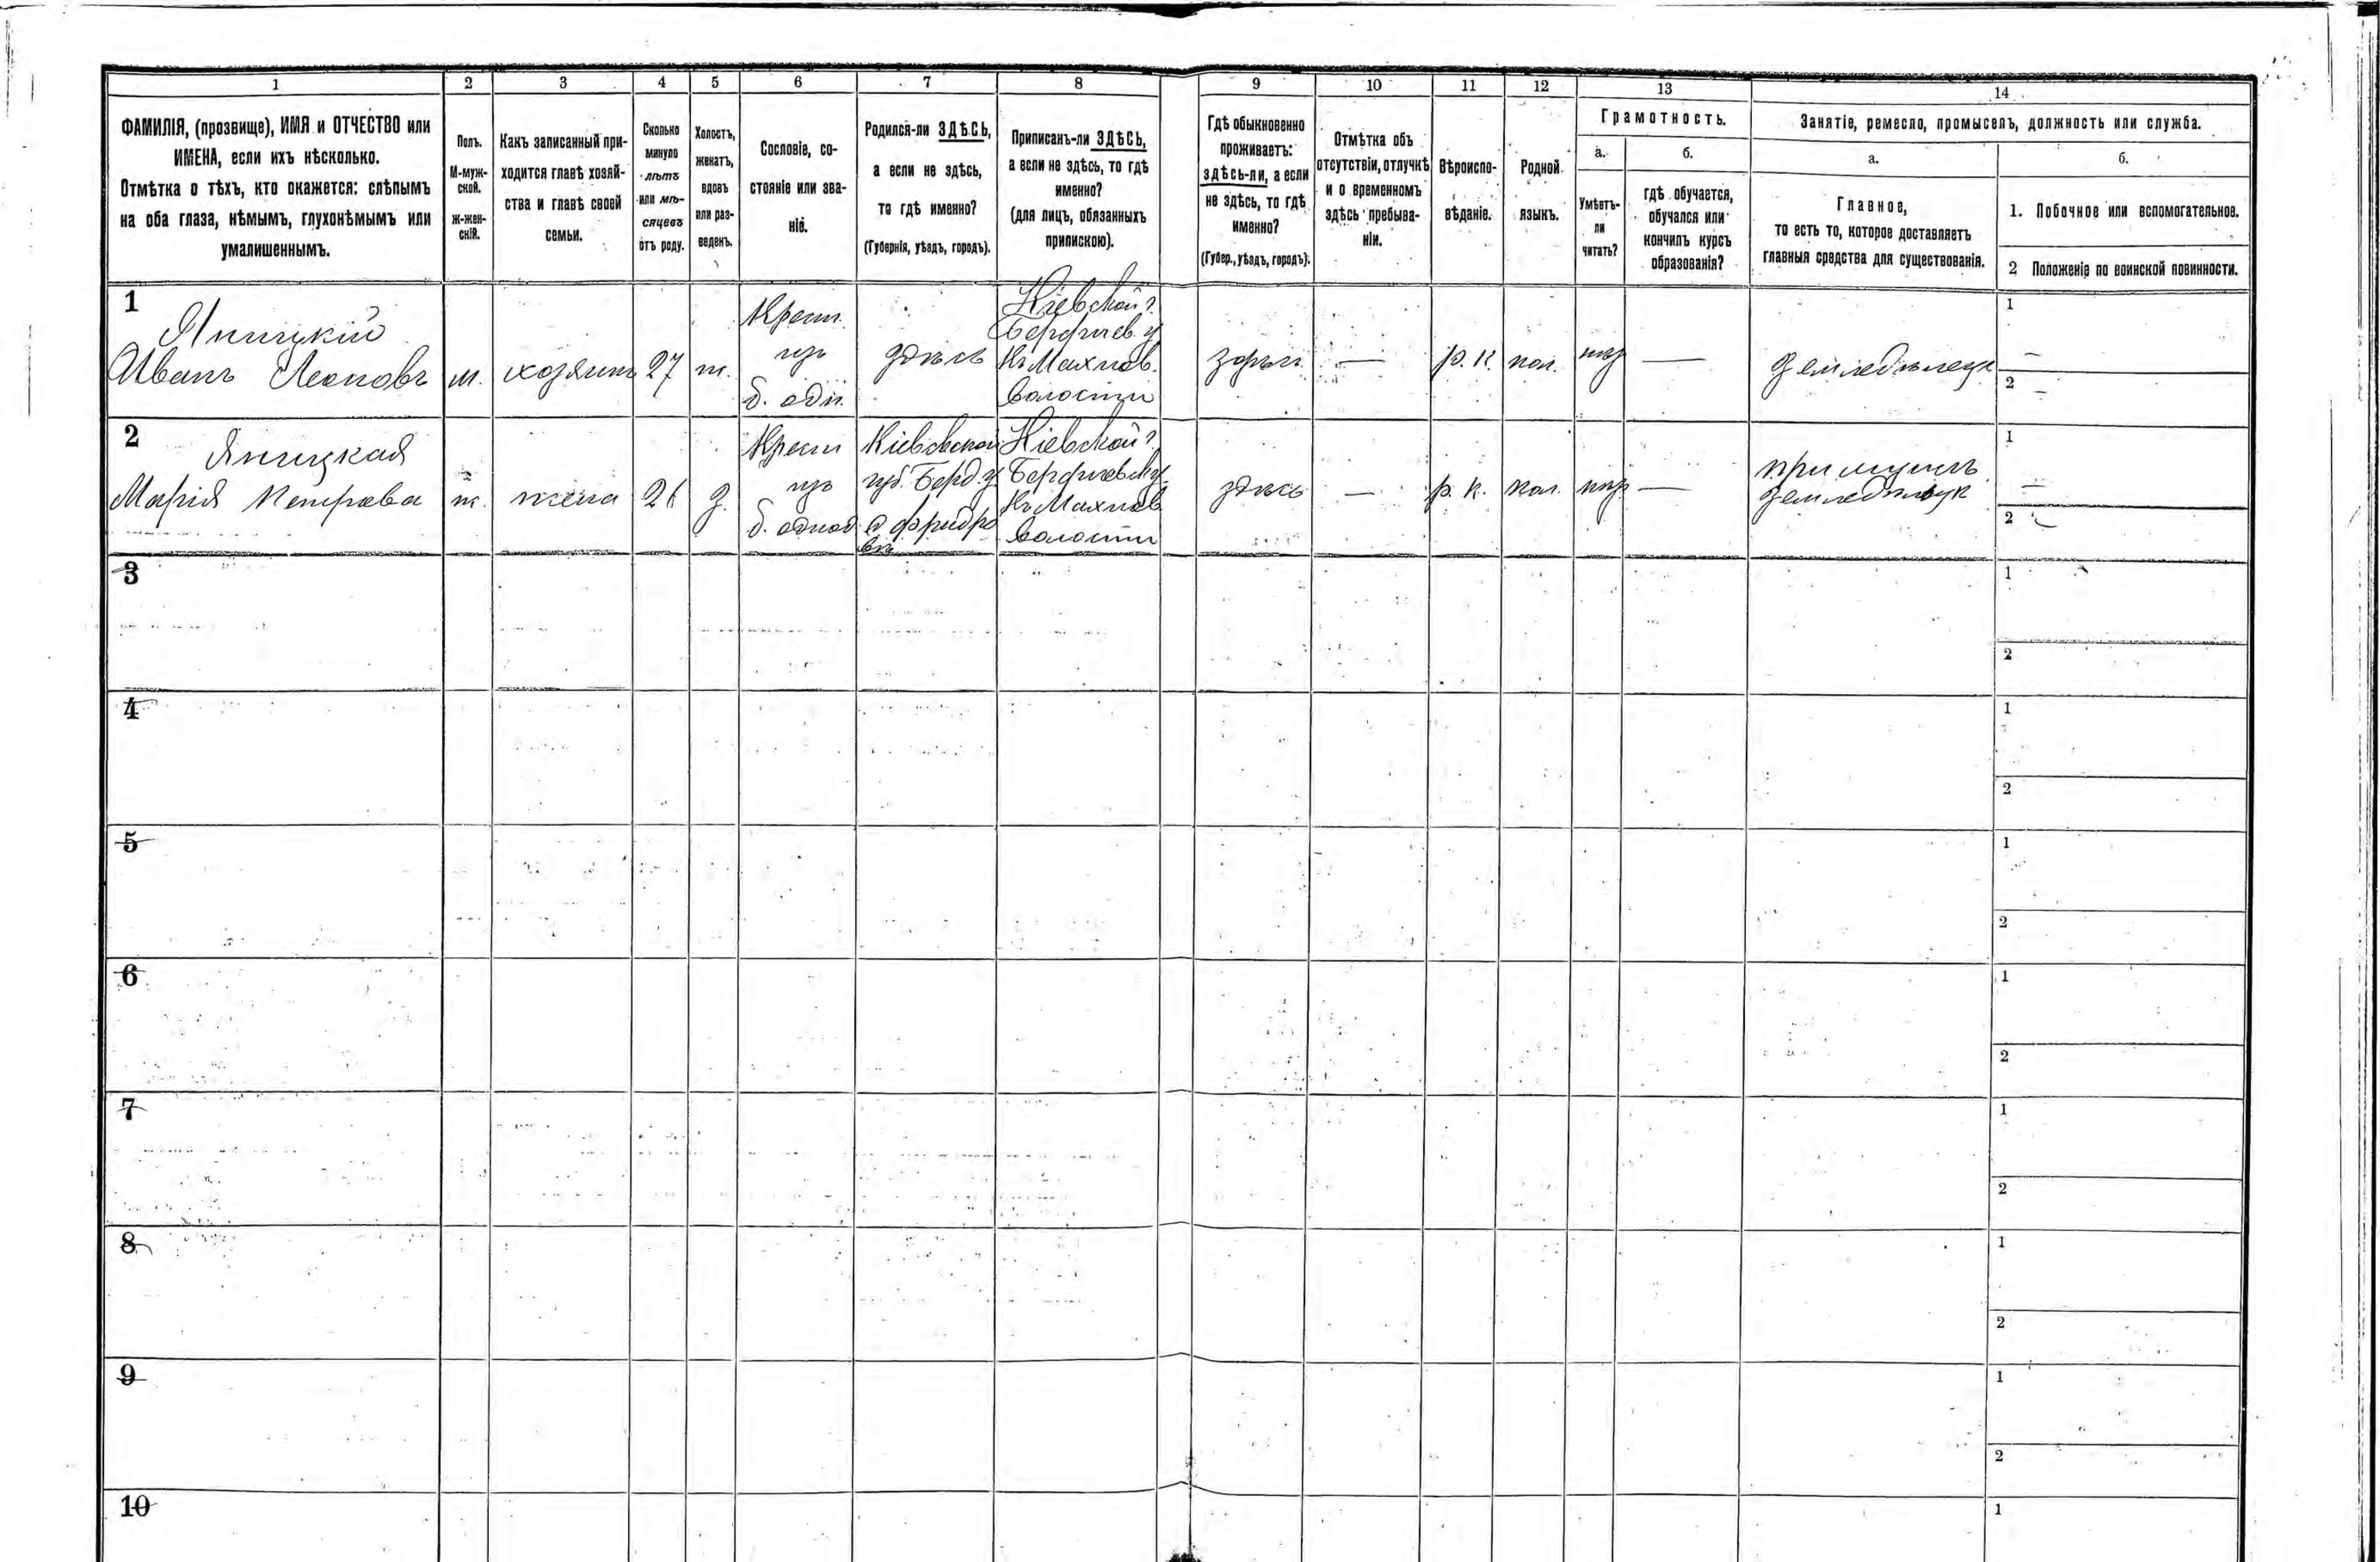 1
2
3
4
5
6
7
8
9
10
11
12
13
14
ФАМИЛІЯ, (прозвище), ИМЯ и ОТЧЕСТВО или
ИМЕНА, если ихъ нѣсколько.
Отмѣтка о тѣхъ, кто окажется: слѣпымъ
на оба глаза, нѣмымъ, глухонѣмымъ или
умалишеннымъ.
Полъ.
М-муж-
ской.
ж-жен-
скій.
Какъ записанный при-
ходится главѣ хозяй-
ства и главѣ своей
семьи.
Сколько
минуло
лѣтъ
или мѣ-
сяцевъ
отъ роду.
Холостъ,
женатъ,
вдовъ
или раз-
веденъ.
Сословіе, со-
стояніе или зва-
ніе.
Родился-ли ЗДѢСЬ,
а если не здѣсь,
то гдѣ именно?
(Губернія, уѣздъ, городъ).
Приписанъ-ли ЗДѢСЬ,
а если не здѣсь, то гдѣ
именно?
(для лицъ, обязанныхъ
припискою).
Гдѣ обыкновенно
проживаетъ:
здѣсь-ли, а если
не здѣсь, то гдѣ
именно?
(Губер., уѣздъ, городъ).
Отмѣтка объ
отсутствіи, отлучкѣ
и о временномъ
здѣсь пребыва-
ніи.
Вѣроиспо-
вѣданіе.
Родной
языкъ.
Грамотность.
а.
Умѣетъ-
ли
читать?
б.
гдѣ обучается,
обучался или
кончилъ курсъ
образованія?
Занятіе, ремесло, промыселъ, должность или служба.
а.
Главное,
то есть то, которое доставляетъ
главныя средства для существованія.
б.
1. Побочное или вспомогательное.
2 Положеніе по воинской повинности.
1
Яницкій
Иванъ Леоновъ
м.
хозяинъ
27
Крест.
изъ
б. одн.
здѣсь
Кіевской г.
Бердичев. у
Къ Махнов.
волости
здѣсь
—
р. к.
пол.
—
земледѣлецъ
1
—
2
—
2
Яницкая
Марія Петрова
ж.
жена
26
з.
Крест
изъ
б. однод
Кіевской
губ. Берд. у
Кіевской г.
Бердичевск у.
Къ Махнов
волости
здѣсь
—
р. к.
пол.
—
при мужѣ
1
—
2
3
1
2
4
1
2
5
1
2
6
1
2
7
1
2
8
1
2
9
1
2
10
1